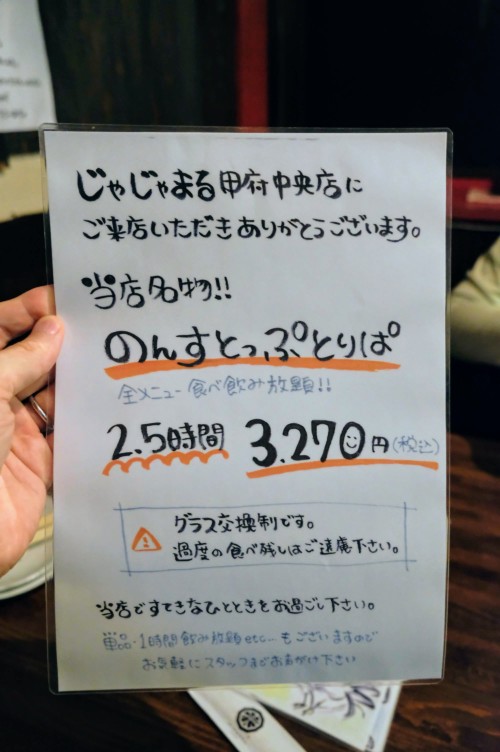 じゃじゃまる甲府中央店に
ご来店いただきありがとうございます。
当店名物!!
のんすとっぷとりぱ
全メニュー食べ飲み放題!!
2.5時間 3.270円(税込)
グラス交換制です。
過度の食べ残しはご遠慮下さい。
当店ですてきなひとときをお過ごし下さい。
単品・1時間飲み放題etc…もございますので
お気軽にスタッフまでお声がけ下さい